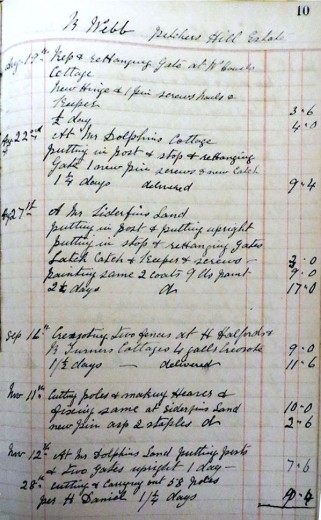 10
R Webb Pitchers Hill Estate
Aug 19th Rep & reHanging Gate at W
Cottage
new Hinge & 1 pin screws nails &
Keeper 3-6
½ day 4-0
Ag 22nd At Mr Dolphins Cottage
putting in post & stop & reHanging
Gate 1 new pin screws & new Catch
1¼ days delivered 9-4
Ag 27th At Mr Siderfins Land
putting in post & putting upright
putting in stop & reHanging Gates
Latch Catch & Keeper & screws - 3-0
painting same 2 coats 9 lbs paint 9-0
2¼ days d 17-0
Sep 16th Creosoting two fences at H Halfords &
R Turners Cottages 4 galls Creosote 9-0
1½ days - delivered 11-6
Nov 11th Cutting poles & making &
fixing same at Siderfins Land 10-0
new pin asp 2 staples d 2-6
Nov 12th At Mr Dolphins Land putting posts
& two Gates upright 1 day - 7-6
28th cutting & Carrying out 58 poles
per H Daniel 1¼ days 9-4